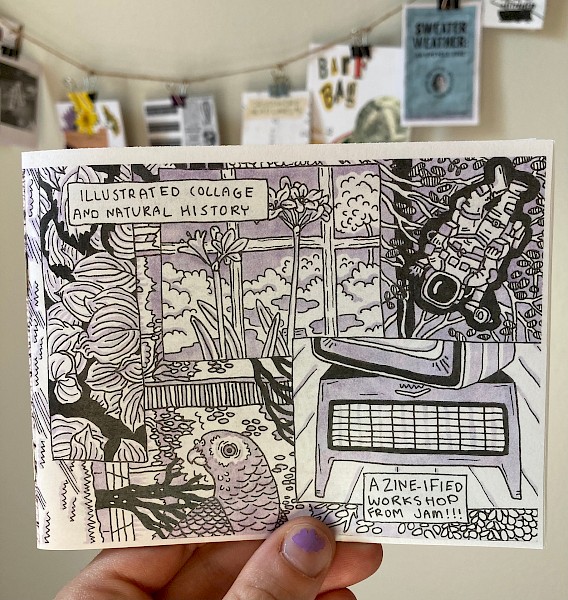 SWEATER
WEATHER:
BARF
BAG
ILLUSTRATED COLLAGE
AND NATURAL HISTORY
A ZINE-IFIED
WORKSHOP
FROM JAM!!!